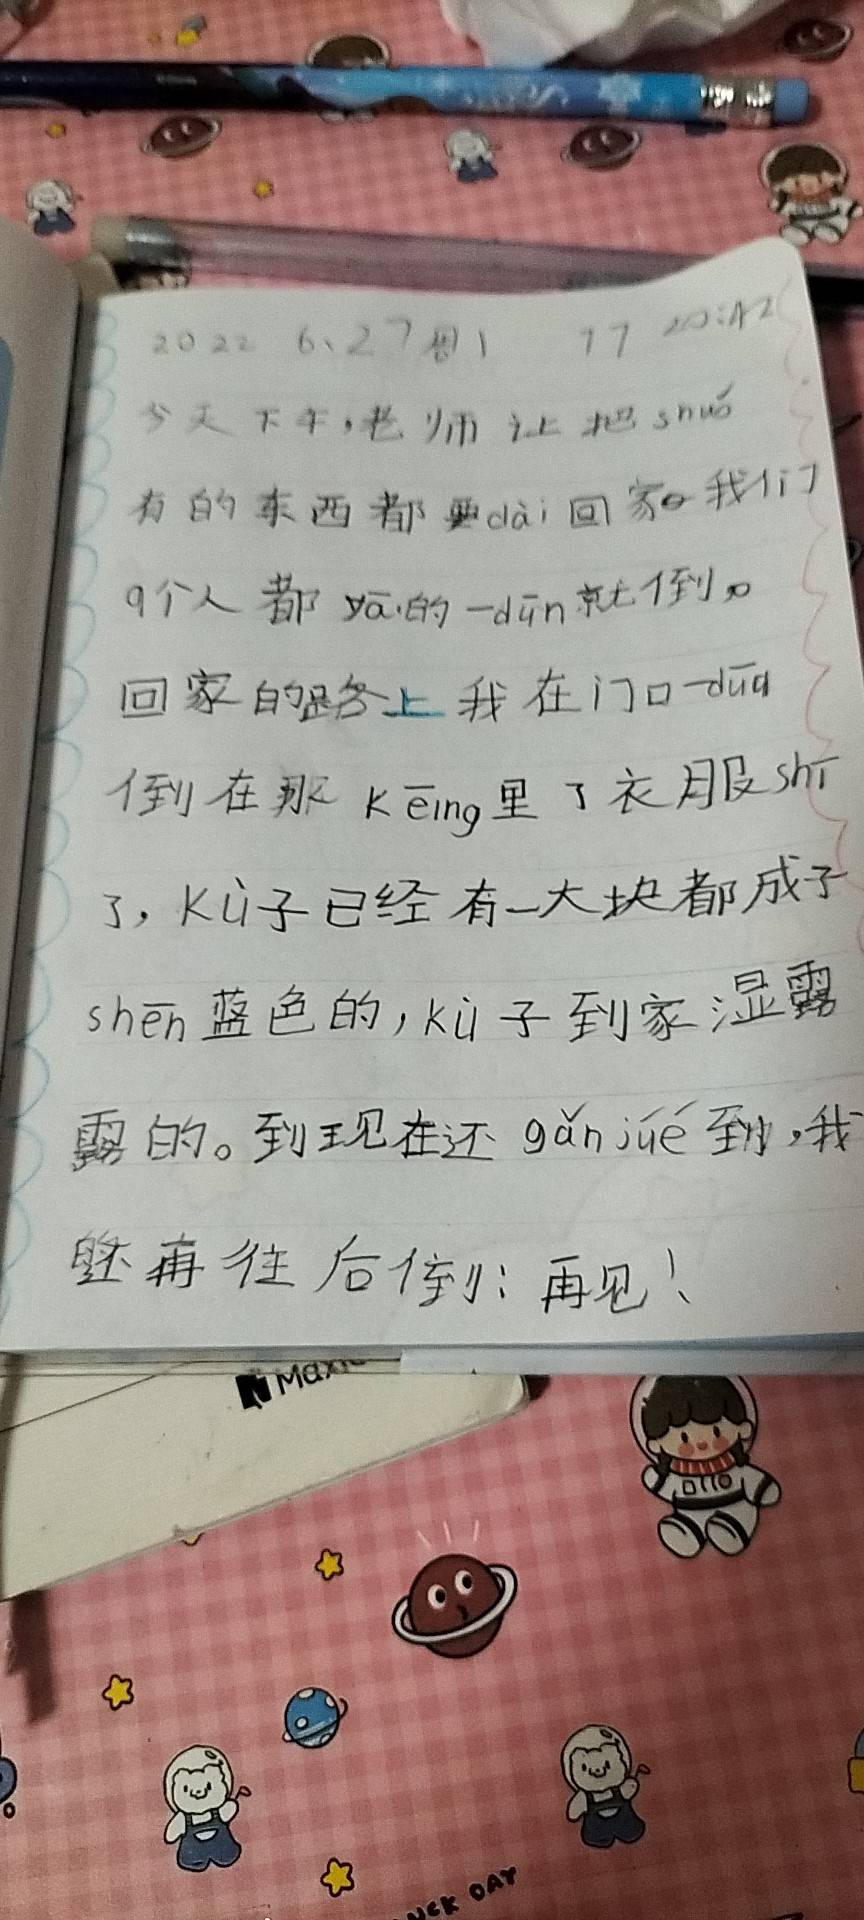 2022 6、27周1 17 20:42
今天下午，老师让把shuó
有的东西都要dài回家。我们
9个人都yā的一dūn就倒。
回家的路上我在门口一dūn
倒在那kēing里了衣服shī
了，Kù子已经有一大块都成了
shēn蓝色的，kù子到家湿露
露的。到现在还gǎn júé到，我
还再往后倒；再见！
Maxi
OTTO
UCK DAY